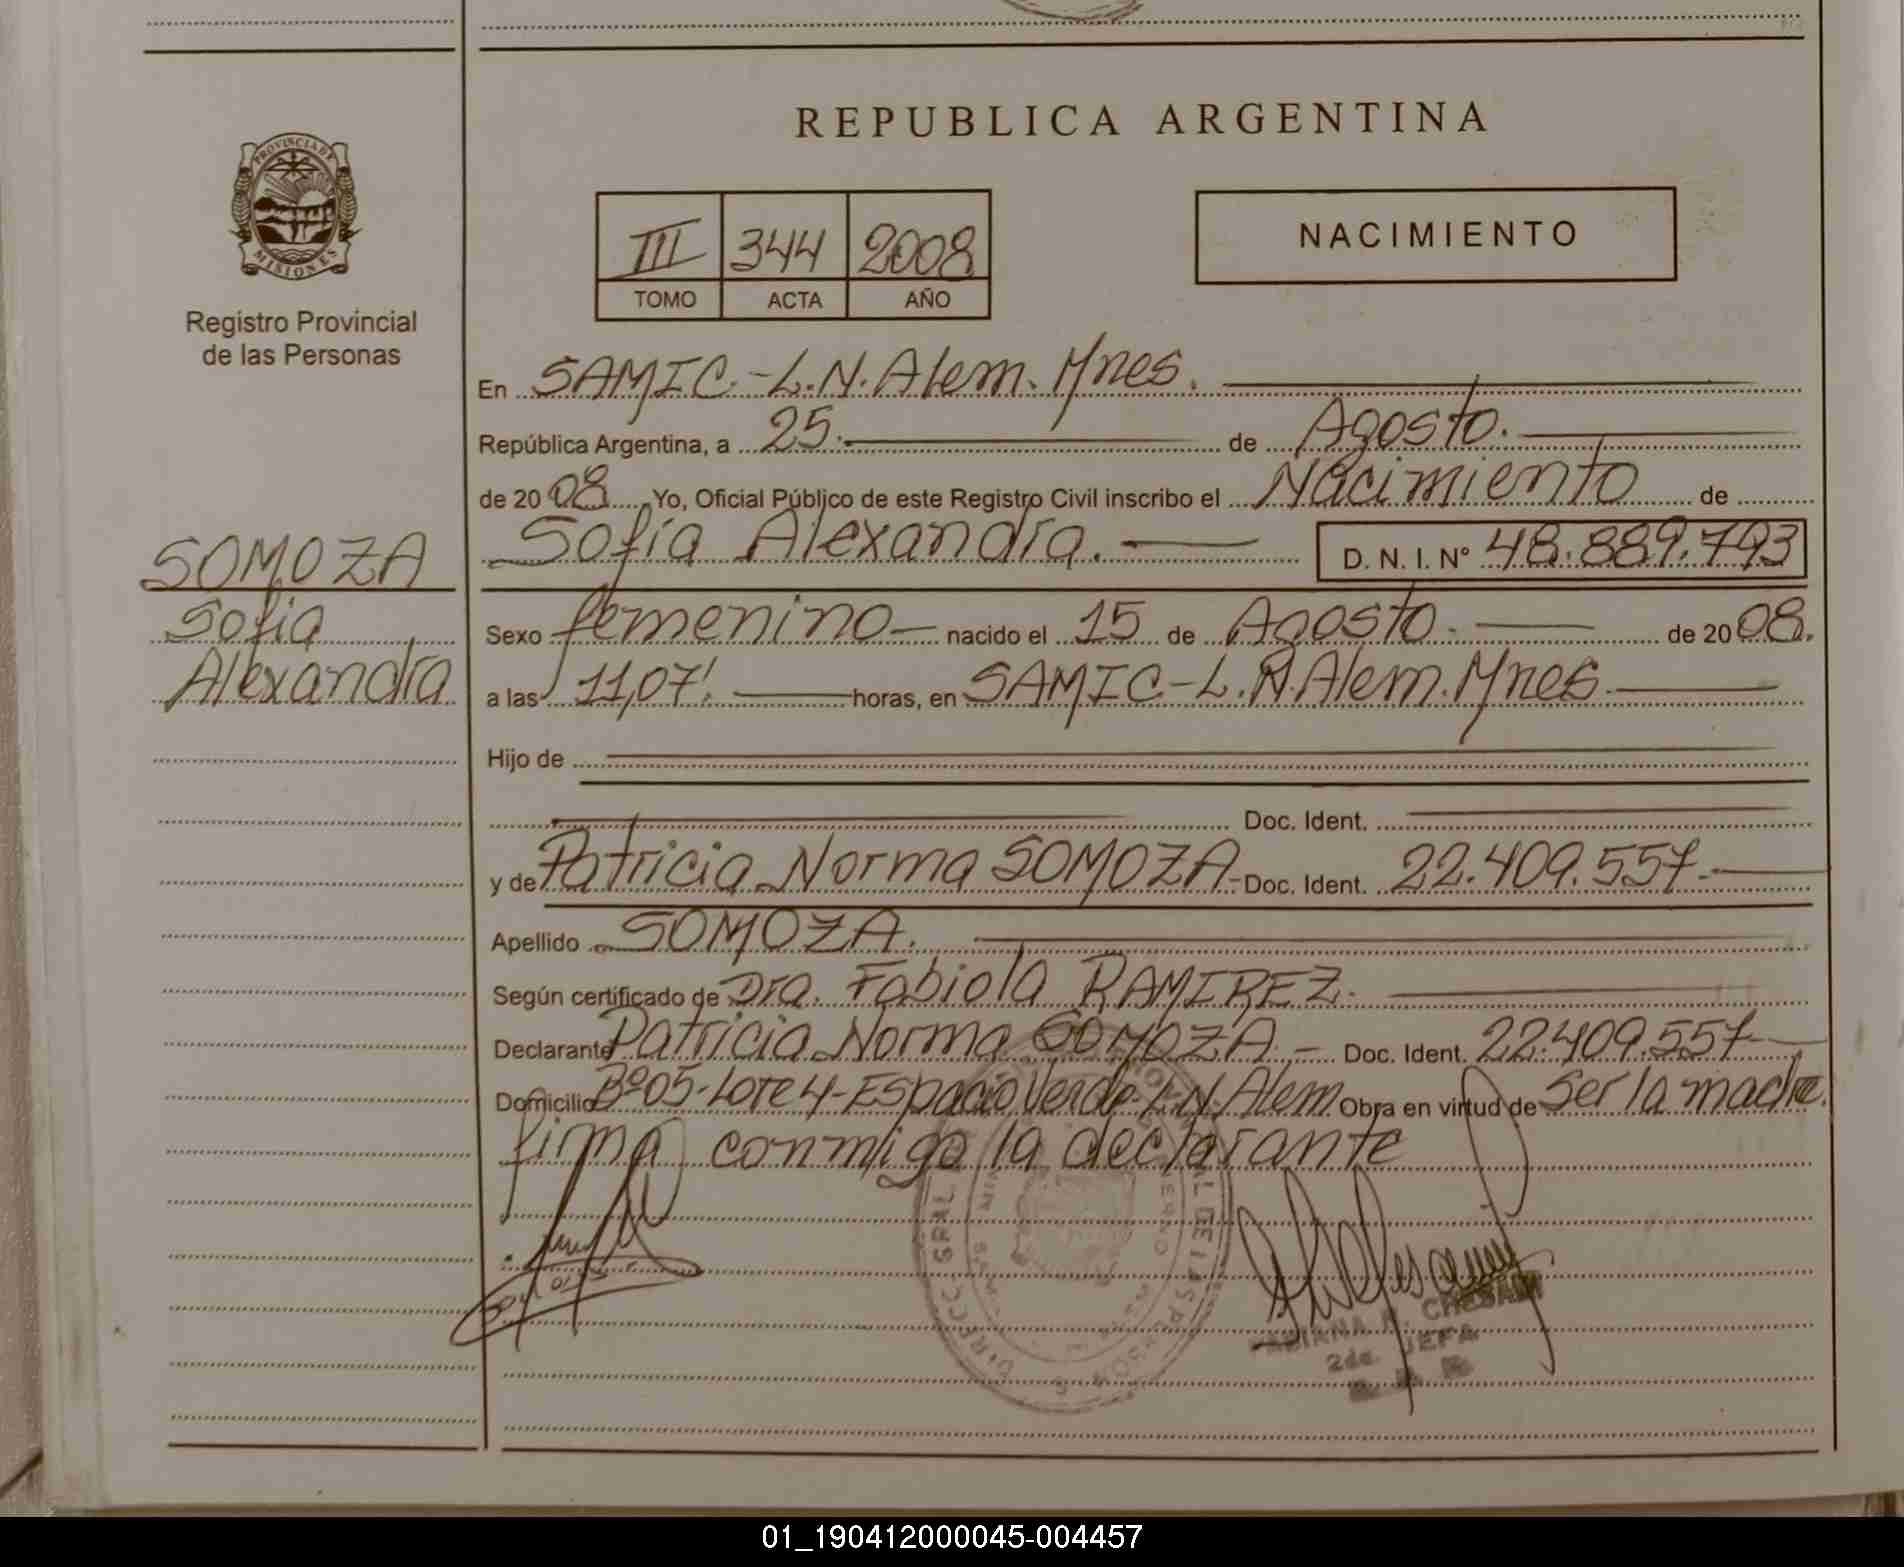 REPUBLICA ARGENTINA
PROVINCIA DE
MISIONES
Registro Provincial
de las Personas
III 344 2008
TOMO ACTA AÑO
NACIMIENTO
En SAMIC.-L.N.Alem.Mnes.
República Argentina, a 25. de Agosto.
de 20 08 Yo, Oficial Público de este Registro Civil inscribo el Nacimiento de
Sofia Alexandra. D. N. I. N° 48.889.793
SOMOZA
Sofia
Alexandra
Sexo femenino nacido el 15 de Agosto. de 20 08.
a las 11,07'. horas, en SAMIC-L.N.Alem.Mnes.
Hijo de
Doc. Ident.
y de Patricia Norma SOMOZA- Doc. Ident. 22.409.557.-
Apellido SOMOZA.
Según certificado de Dra. Fabiola RAMIREZ.
Declarante Patricia Norma SOMOZA.- Doc. Ident. 22.409.557-
Domicilio Bº05-Lote 4-Espacio Verde-L.N.Alem Obra en virtud de Ser la madre.
firma conmigo la declarante
FABIANA CHESANI
2da. JEFA
01_190412000045-004457